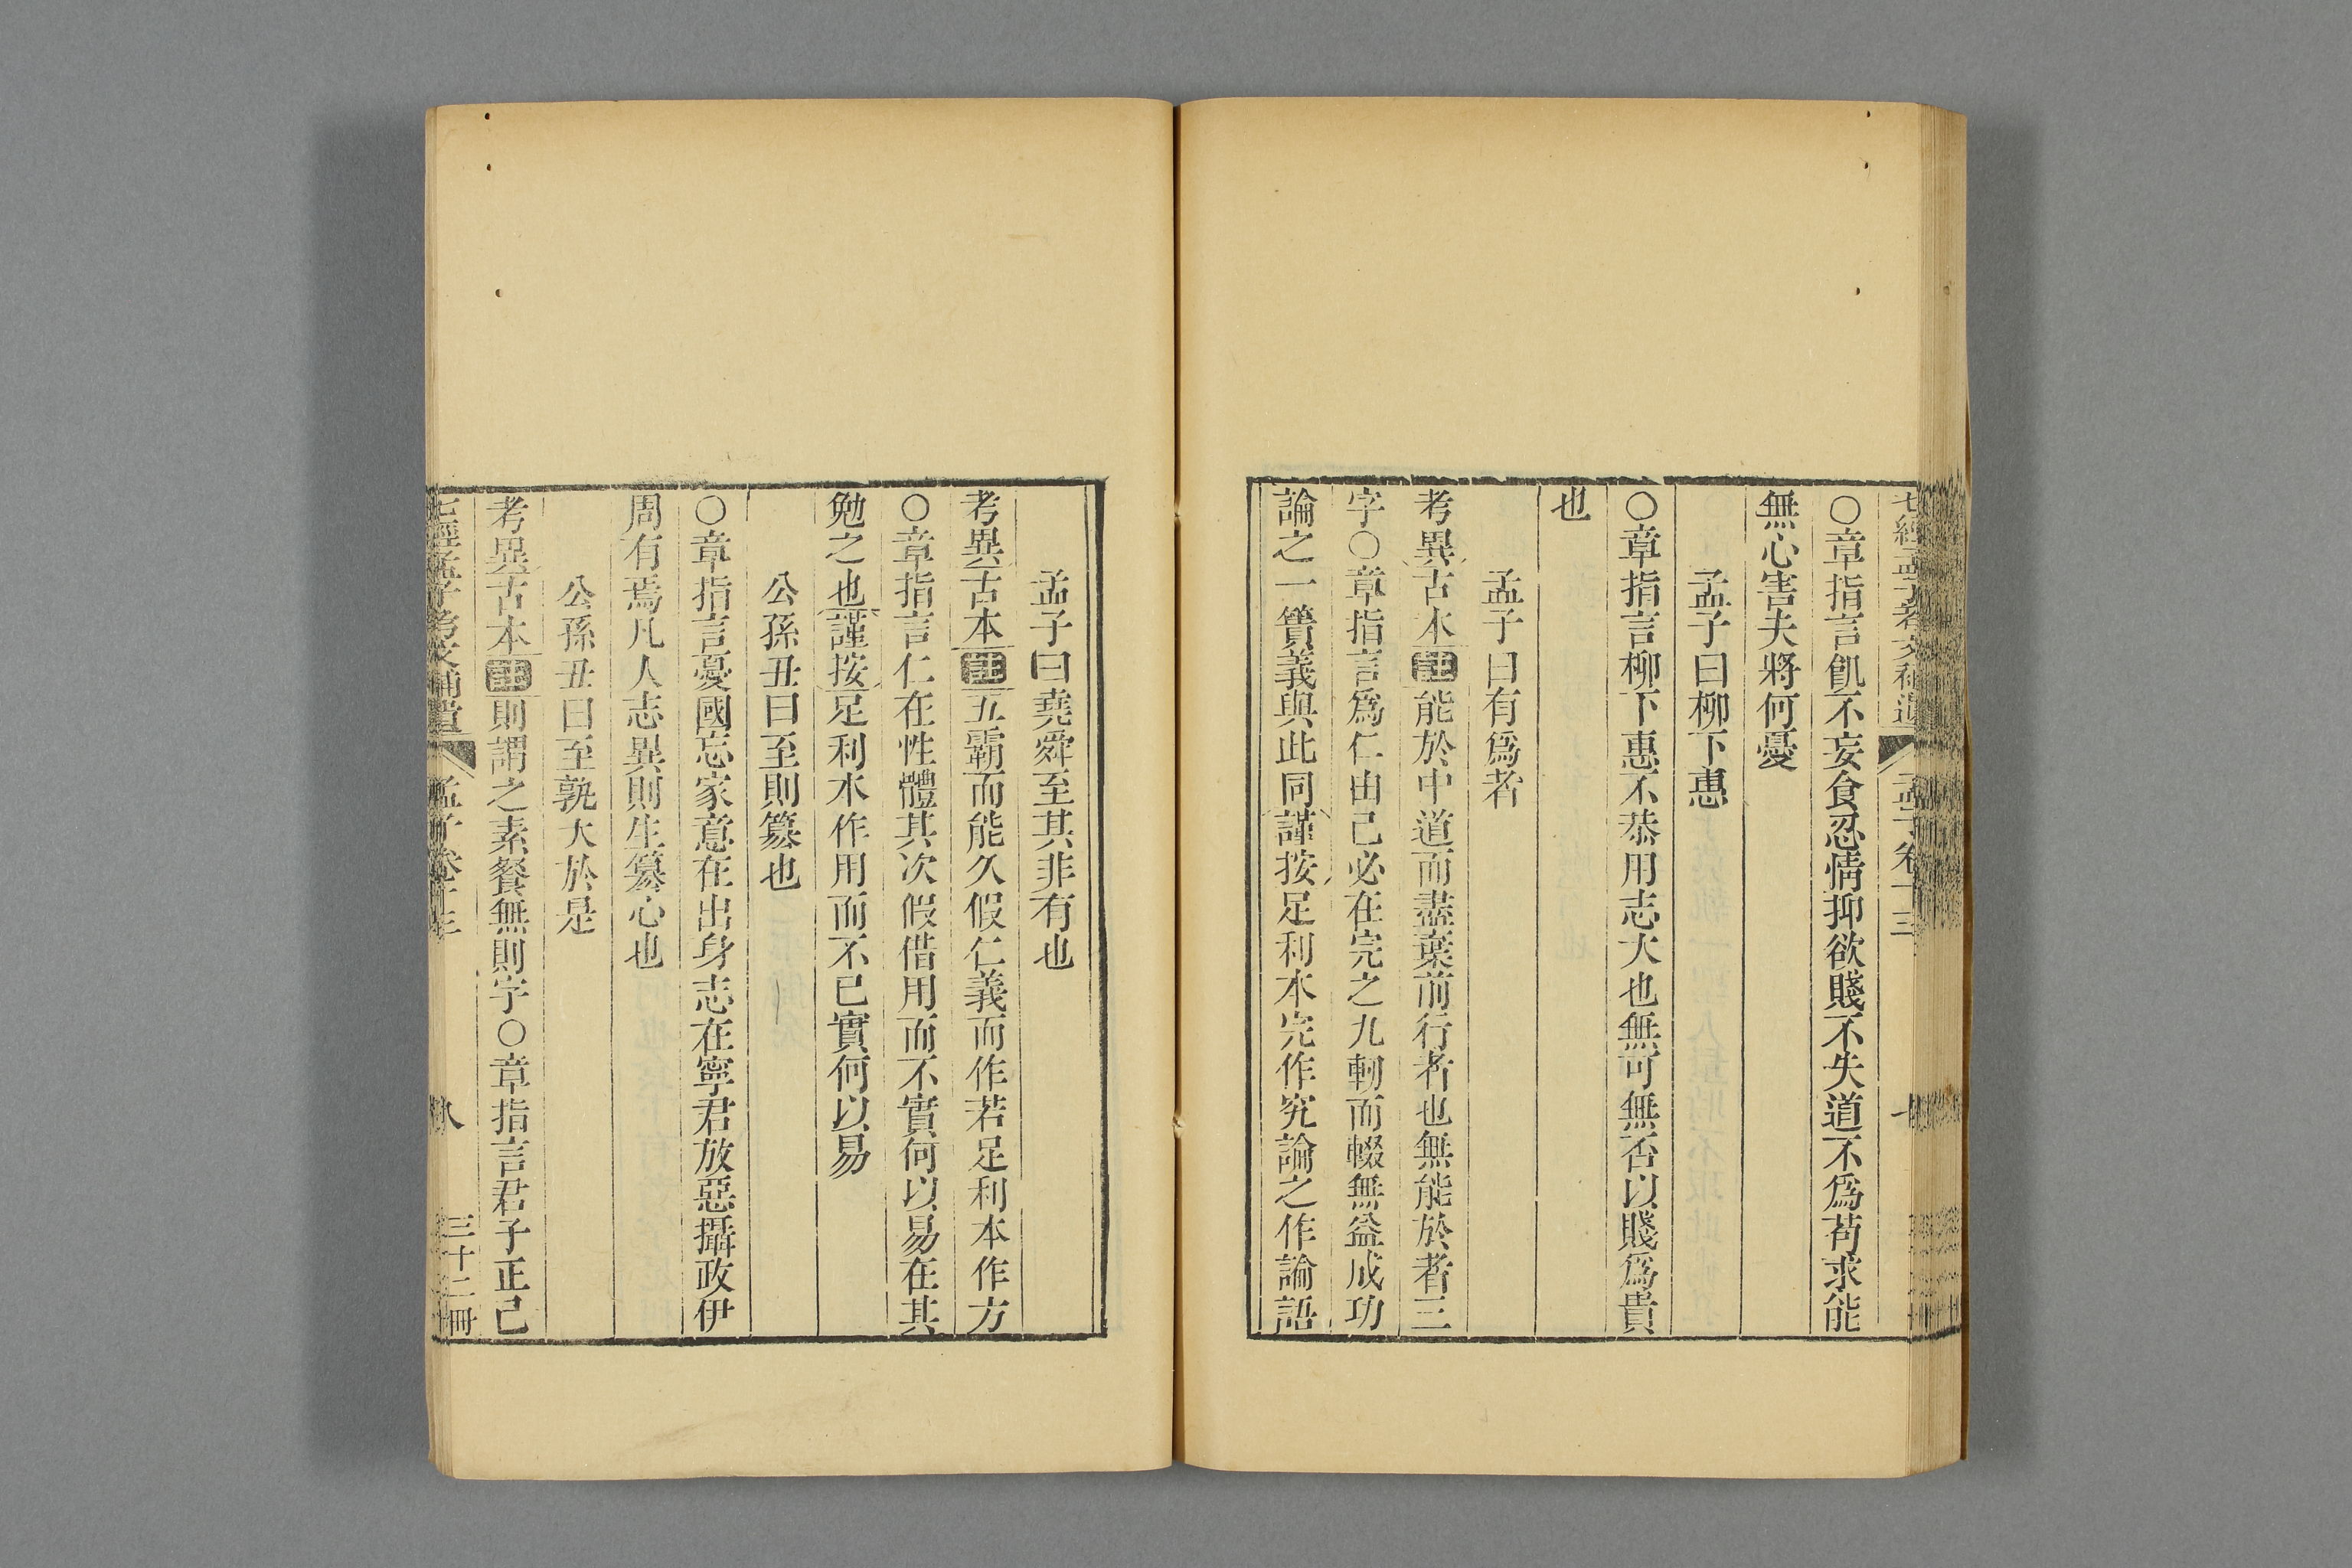 七經孟子考文補遺 孟子卷十三 七
○章指言飢不妄食忍情抑欲賤不失道不爲苟求能
無心害夫將何憂
孟子曰柳下惠
○章指言柳下惠不恭用志大也無可無否以賤爲貴
也
孟子曰有爲者
考異古本註能於中道而盡棄前行者也無能於者三
字○章指言爲仁由己必在完之九軔而輟無益成功
論之一簣義與此同謹按足利本完作究論之作論語
孟子曰堯舜至其非有也
考異古本註五霸而能久假仁義而作若足利本作方
○章指言仁在性體其次假借用而不實何以易在其
勉之也謹按足利本作用而不已實何以易
公孫丑曰至則簒也
○章指言憂國忘家意在出身志在寧君放惡攝政伊
周有焉凡人志異則生簒心也
公孫丑曰至孰大於是
考異古本註則謂之素餐無則字○章指言君子正己
七經孟子考文補遺 孟子卷十三 八 三十二冊